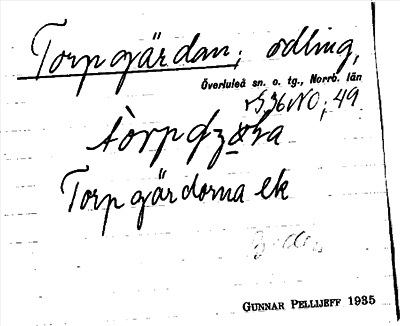 Torpgärdan; odling,
Överluleå sn. o. tg., Norrb. län
rS36NO; 49
Torpgärdorna ek
GUNNAR PELLIJEFF 1935